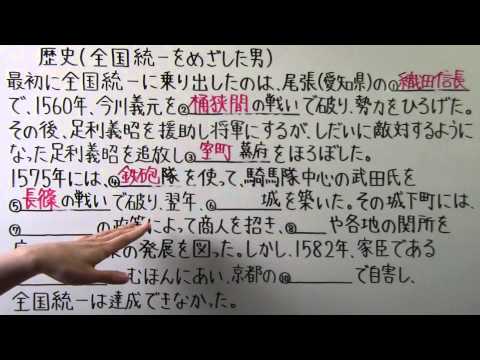 歴史(全国統一をめざした男)
最初に全国統一に乗り出したのは、尾張(愛知県)の①織田信長
で、1560年、今川義元を②桶狭間の戦いで破り、勢力をひろげた。
その後、足利義昭を援助し将軍にするが、しだいに敵対するように
なった足利義昭を追放し③室町幕府をほろぼした。
1575年には、④鉄砲隊を使って、騎馬隊中心の武田氏を
⑤長篠の戦いで破り、翌年、⑥ 城を築いた。その城下町には、
⑦ の政策によって商人を招き、⑧ や各地の関所を
の発展を図った。しかし、1582年、家臣である
むほんにあい、京都の⑩ で自害し、
全国統一は達成できなかった。